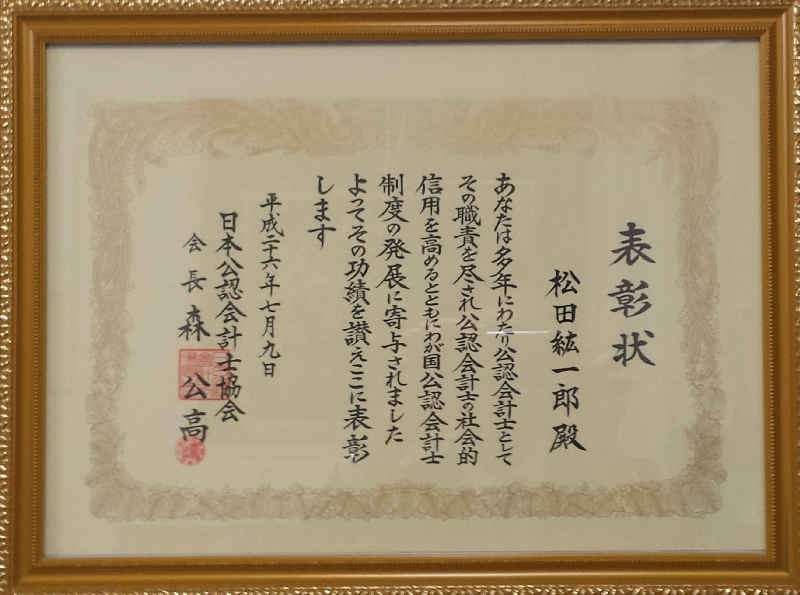 表彰状
松田紘一郎殿
あなたは多年にわたり公認会計士として
その職責を尽され公認会計士の社会的
信用を高めるとともにわが国公認会計士
制度の発展に寄与されました
よってその功績を讃えここに表彰
します
平成二十六年七月九日
日本公認会計士協会
会長 森 公高